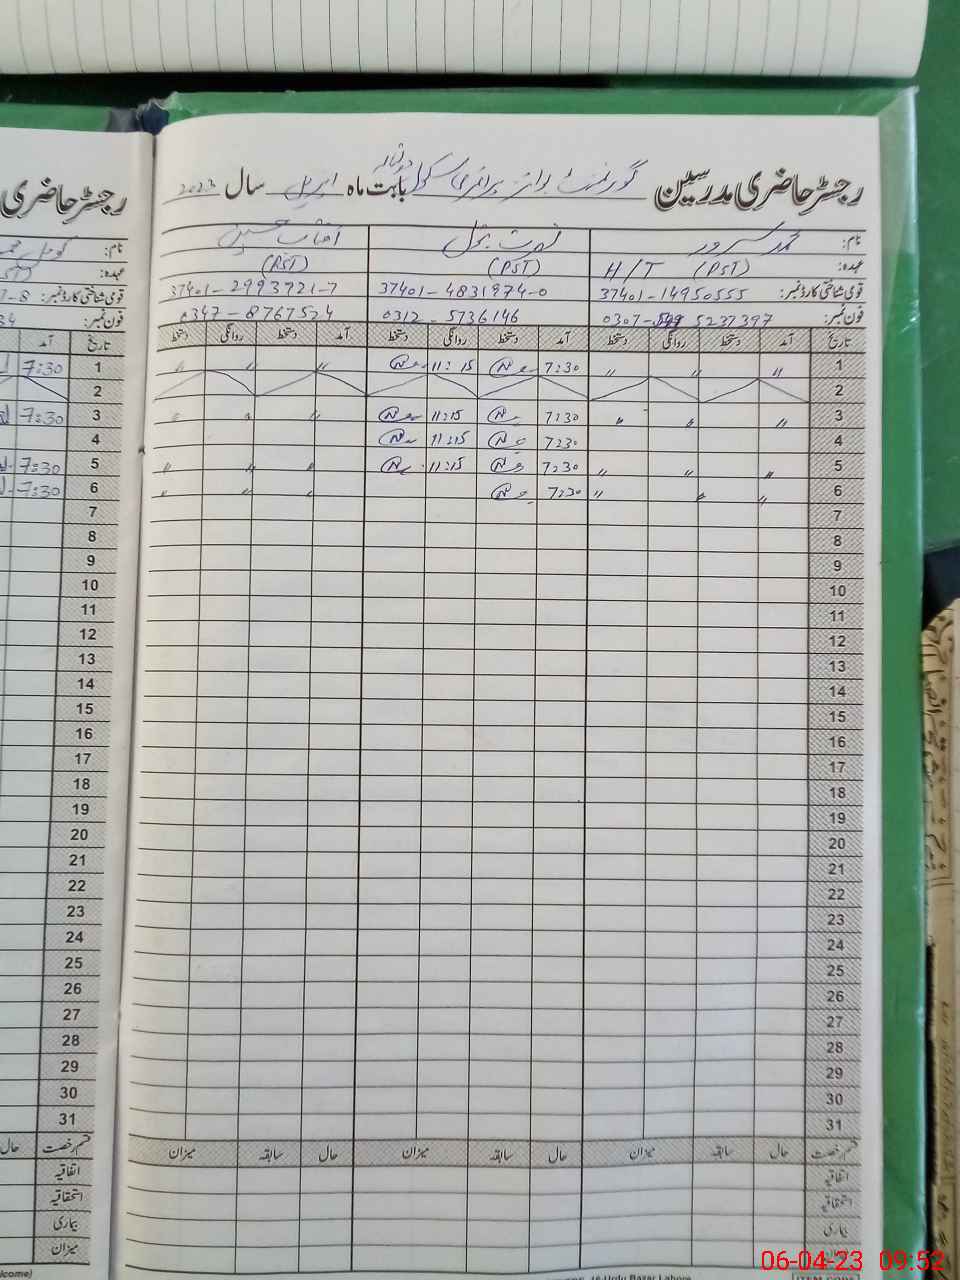 رجسٹر حاضری مدرسین گورنمنٹ بوائز پرائمری سکول بابت ماہ اپریل سال 2023
نام: محمد سرور
عہدہ: H/T (PST) (PST) (PST)
قومی شناختی کارڈ نمبر: 37401-14950555 37401-4831974-0 37401-2993721-7
فون نمبر: 0307- 5237397 0312-5736146 0347-8767524
تاریخ آمد دستخط روانگی دستخط آمد دستخط روانگی دستخط آمد دستخط روانگی دستخط
1 " " " 7:30 11:15 " " "
2
3 " " " 7:30 11:15 " " "
4 7:30 11:15
5 " " " 7:30 11:15 " " "
6 " " " 7:30 " " "
7
8
9
10
11
12
13
14
15
16
17
18
19
20
21
22
23
24
25
26
27
28
29
30
31
قسم رخصت حال سابقہ میزان حال سابقہ میزان حال سابقہ میزان
اتفاقیہ
استحقاقیہ
بیماری
میزان
رجسٹر حاضری
نام:
عہدہ:
قومی شناختی کارڈ نمبر: 7-8
فون نمبر: 34
تاریخ آمد
1 7:30
2
3 7:30
4
5 7:30
6 7:30
7
8
9
10
11
12
13
14
15
16
17
18
19
20
21
22
23
24
25
26
27
28
29
30
31
قسم رخصت حال
اتفاقیہ
استحقاقیہ
بیماری
میزان
lcome)
Urdu Bazar Lahore
06-04-23 09:52